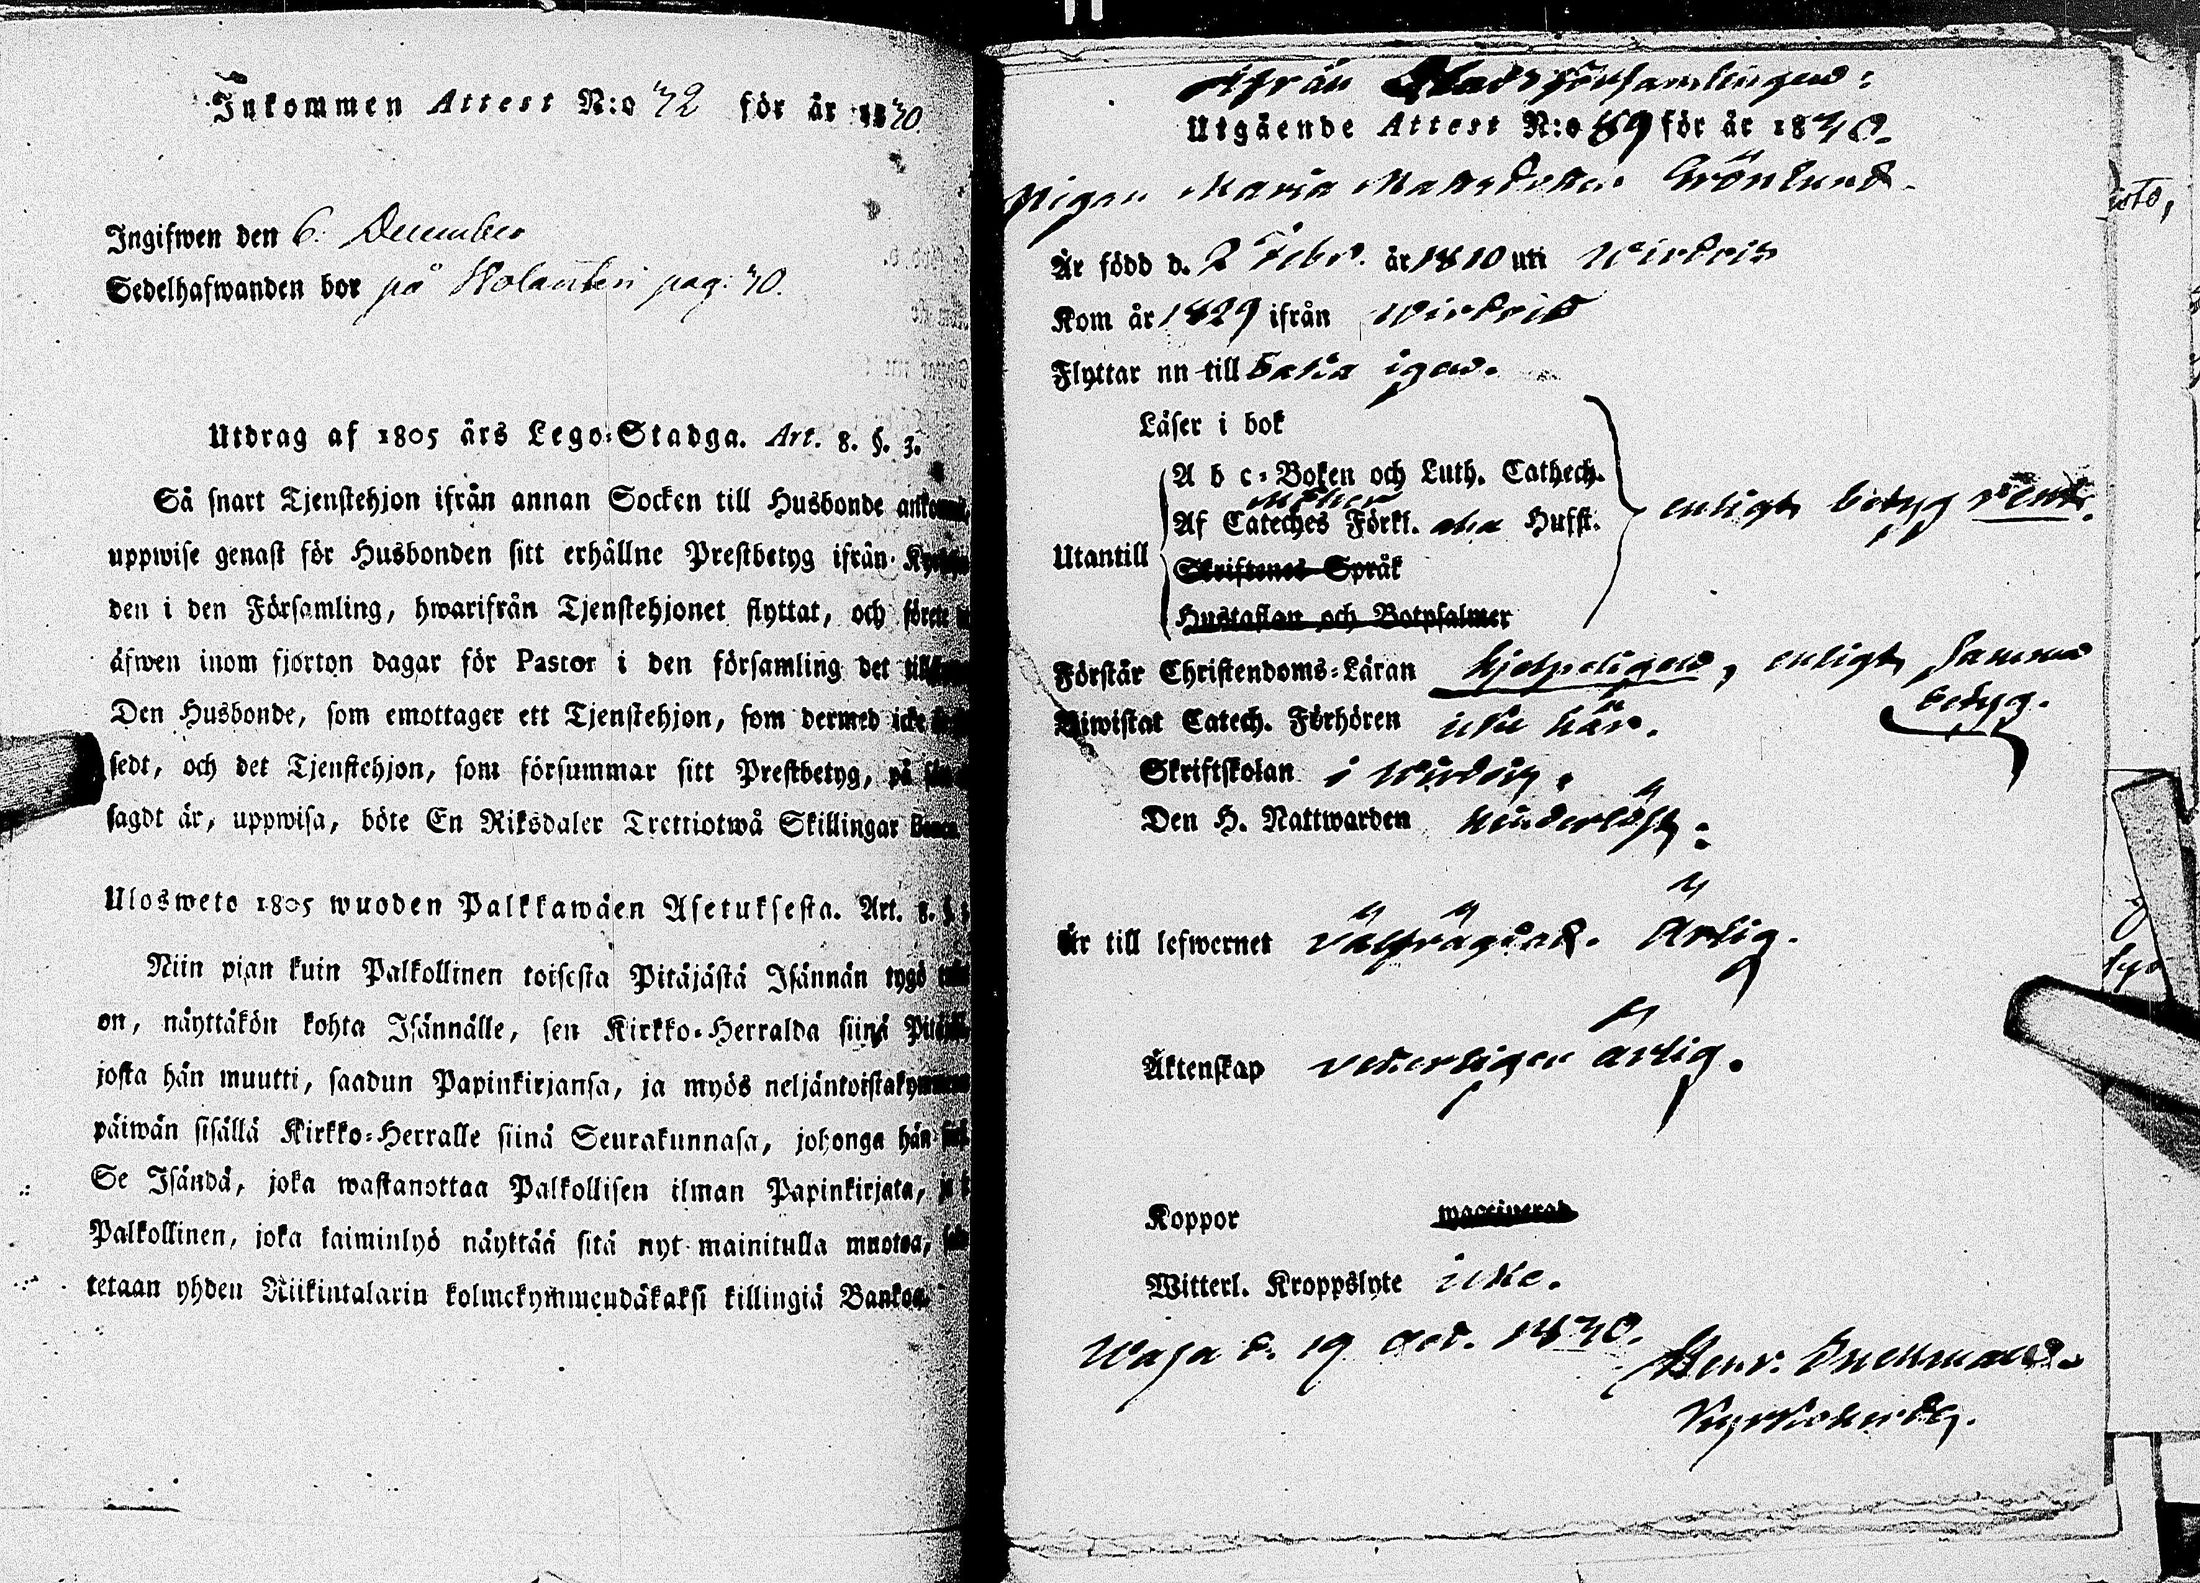 Inkommen Attest N:o 72 för år 1830.
Ingifwen den 6. December
Sedelhafwanden bor på pag. 70.
Utdrag af 1805 års Lego-Stadga. Art. 8. §. 3.
Så snart Tjenstehjon ifrån annan Socken till Husbonde
uppwise genast för Husbonden sitt erhållne Prestbetyg ifrån
den i den Församling, hwarifrån Tjenstehjonet flyttat, och
äfwen inom fjorton dagar för Pastor i den församling det
Den Husbonde, som emottager ett Tjenstehjon, som dermed icke
sedt, och det Tjenstehjon, som försummar sitt Prestbetyg, på
sagdt är, uppwisa, böte En Riksdaler Trettiotwå Skillingar Banco.
Ulosweto 1805 wuoden Palkkawäen Asetuksesta. Art. 8. §.
Niin pian kuin Palkollinen toisesta Pitäjästä Isännän tygö
on, näyttäkön kohta Isännälle, sen Kirkko-Herralda siinä
josta hän muutti, saadun Papinkirjansa, ja myös neljäntoistakymmenen
päiwän sisällä Kirkko-Herralle siinä Seurakunnasa, johonga hän
Se Isändä, joka wastanottaa Palkollisen ilman Papinkirjata,
Palkollinen, joka laiminlyö näyttää sitä nyt mainitulla muotoa,
tetaan yhden Riikintalarin kolmekymmendäkaksi killingiä Bankoa.
ifrån Stadsförsamlingen:
Utgående Attest N:o 89 för år 1830.
Pigan Maria Mattsdotter Grönlund.
Är född d. 2 Febr. år 1810 uti Wirdois
Kom år 1829 ifrån Wirdois
Flyttar nu till baka igen.
Läser i bok
A b c-Boken och Luth. Cathech.
Af Cateches Förkl. Husst.
enligt betyg rent.
Utantill
Skriftenes Språk
Hustaflan och Botpsalmer
Förstår Christendoms-Läran hjelpeligen, enligt samma
betyg.
Biwistat Catech. Förhören icke här.
Skriftskolan i Wirdois.
Den H. Nattwarden hinderlöst.
Är till lefwernet välfrägdad. Ärlig.
Äktenskap veterligen ärlig.
Koppor waccinerad
Witterl. Kroppslyte icke.
Wasa d. 19 1830.
Kyrkoherde.
isto,